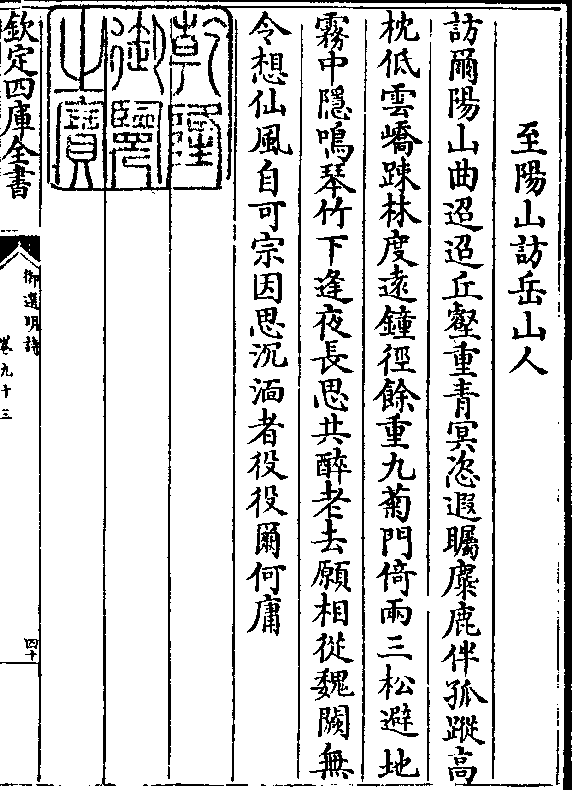 至陽山訪岳山人
訪爾陽山曲迢迢丘壑重青冥恣遐矚麋鹿伴孤蹤高
枕低雲嶠踈林度遠鐘徑餘重九菊門倚兩三松避地
霧中隱鳴琴竹下逢夜長思共醉老去願相從魏闕無
令想仙風自可宗因思沉湎者役役爾何庸
乾隆
御覽
之寶
欽定四庫全書
御選明詩
卷九十三
四十